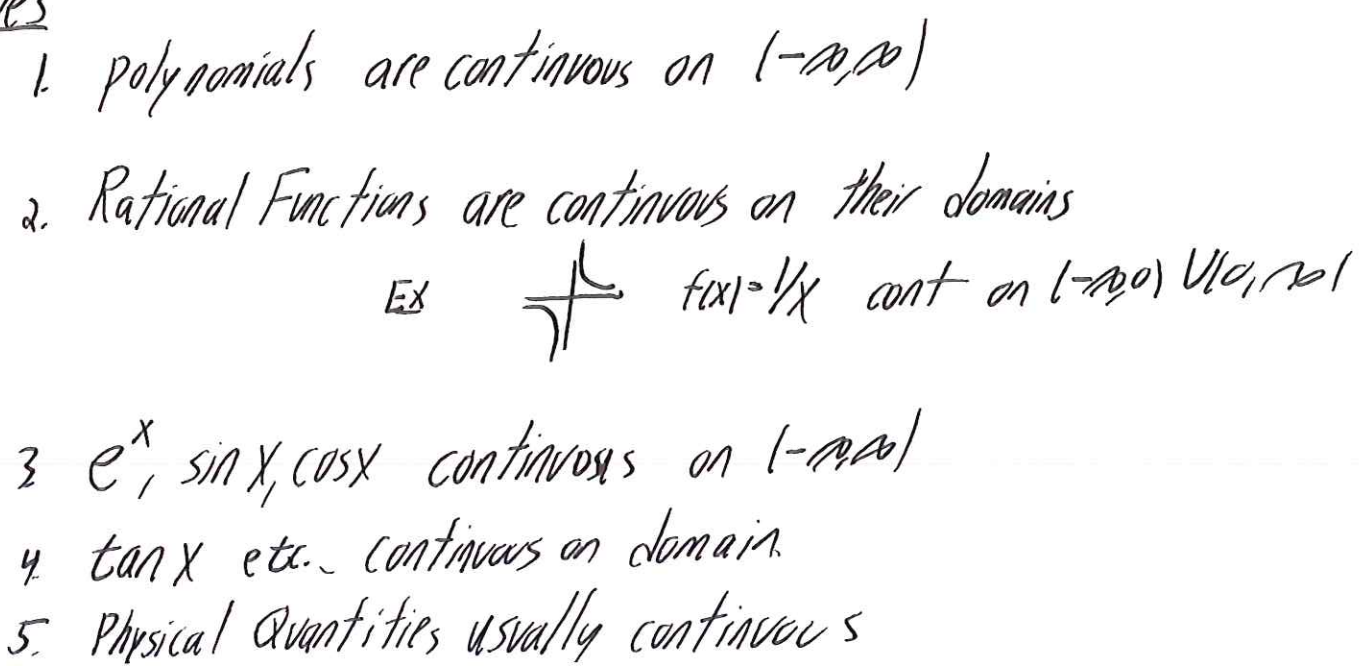 es
1. polynomials are continuous on (-∞,∞)
2. Rational Functions are continuous on their domains
Ex f(x)=1/x cont on (-∞,0) U(0,∞)
3 eˣ, sin x, cos x continuous on (-∞,∞)
4. tan x etc.. continuous on domain
5. Physical Quantities usually continuous